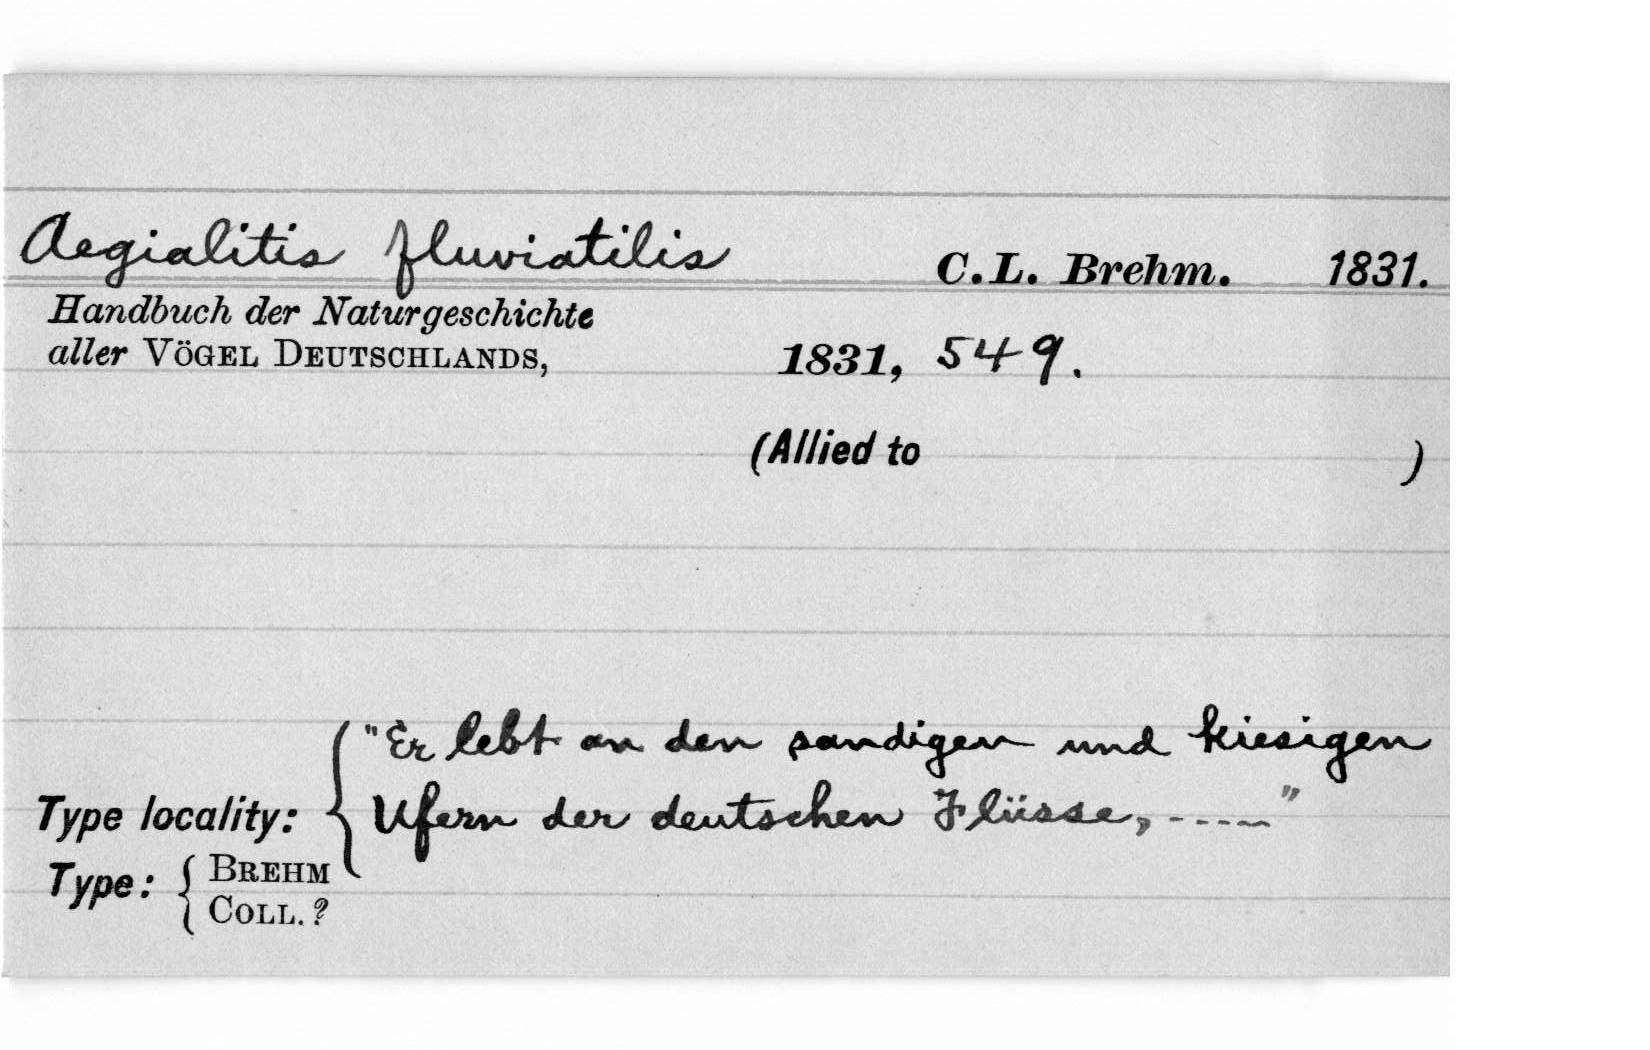 Aegialitis fluviatilis C.L. Brehm. 1831.
Handbuch der Naturgeschichte
aller VÖGEL DEUTSCHLANDS, 1831, 549.
(Allied to )
"Er lebt an den sandigen und kiesigen
Type locality: { Ufern der deutschen Flüsse, ....."
Type: { BREHM
COLL. ?